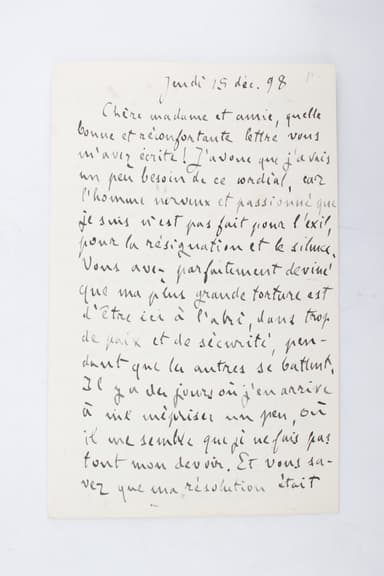 Jeudi 15 déc. 98
Chère madame et amie, quelle
bonne et réconfortante lettre vous
m'avez écrite! J'avoue que j'avais
un peu besoin de ce cordial, car
l'homme nerveux et passionné que
je suis n'est pas fait pour l'exil,
pour la résignation et le silence.
Vous avez parfaitement deviné
que ma plus grande torture est
d'être ici à l'abri, dans trop
de paix et de sécurité, pen-
dant que les autres se battent.
Il y a des jours où j'en arrive
à me mépriser un peu, où
il me semble que je ne fais pas
tout mon devoir. Et vous sa-
vez que ma résolution était